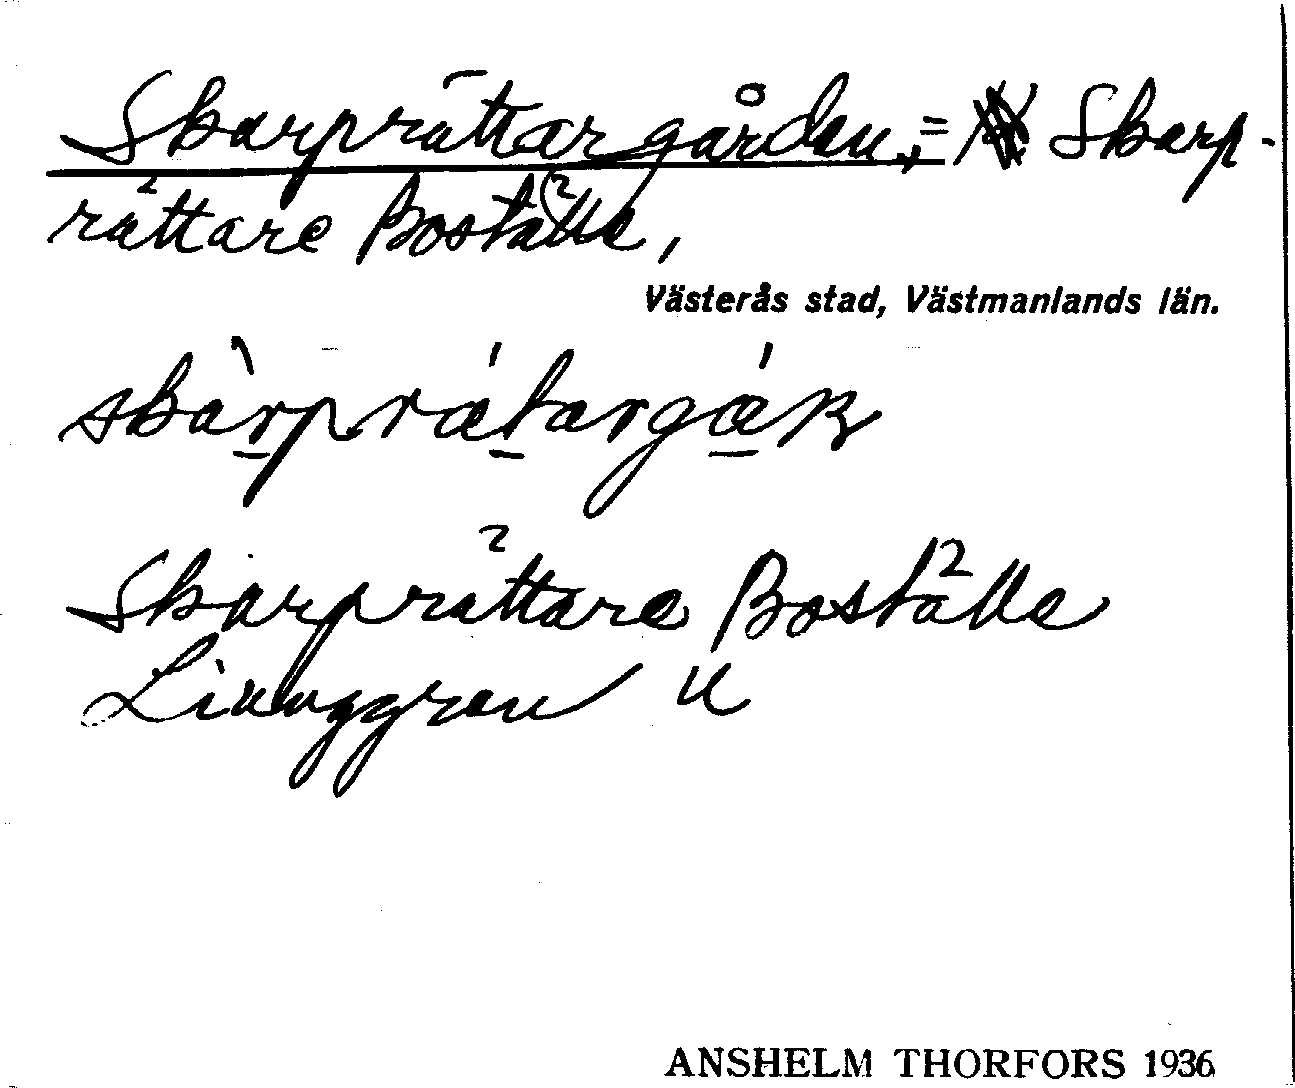 Skarprättargården, = Skarp-
rättare Boställe,
Västerås stad, Västmanlands län.
Skarprättare Boställe
Linnggren U
ANSHELM THORFORS 1936